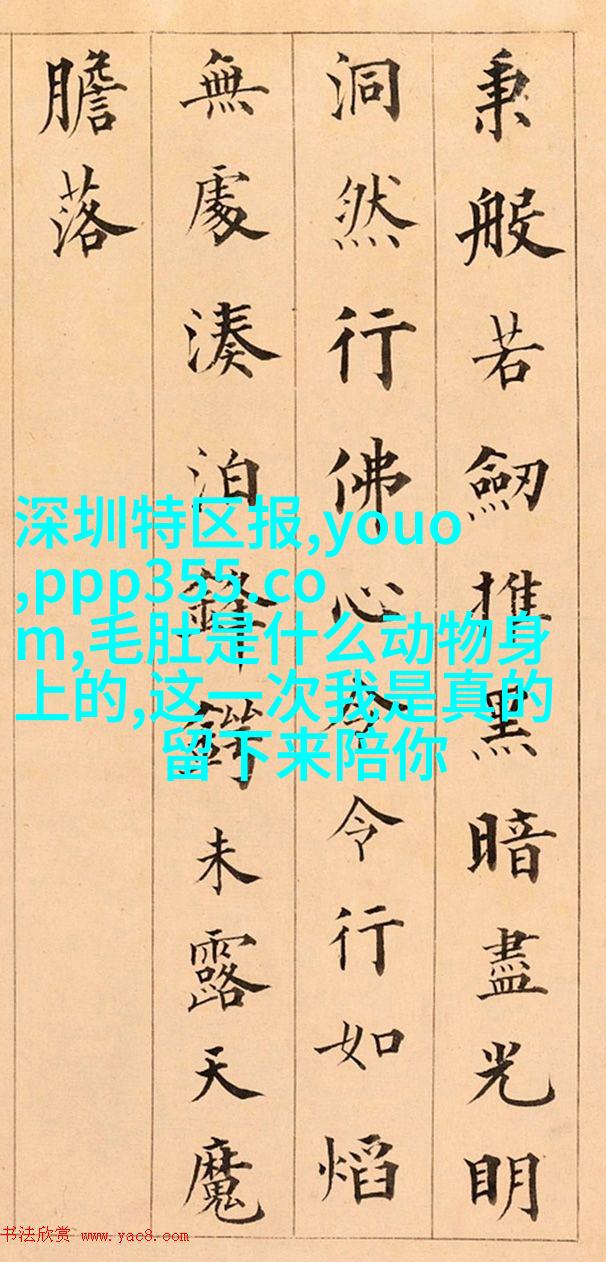 秉般若劒推黑暗盡光明
洞然行佛心令令行如熖
無處湊泊鋒鍔未露天魔
膽落
深圳特区报,youo
,ppp355.co
m,毛肚是什么动物身
上的,这一次我是真的
留下来陪你
书法欣赏 www.yac8.com